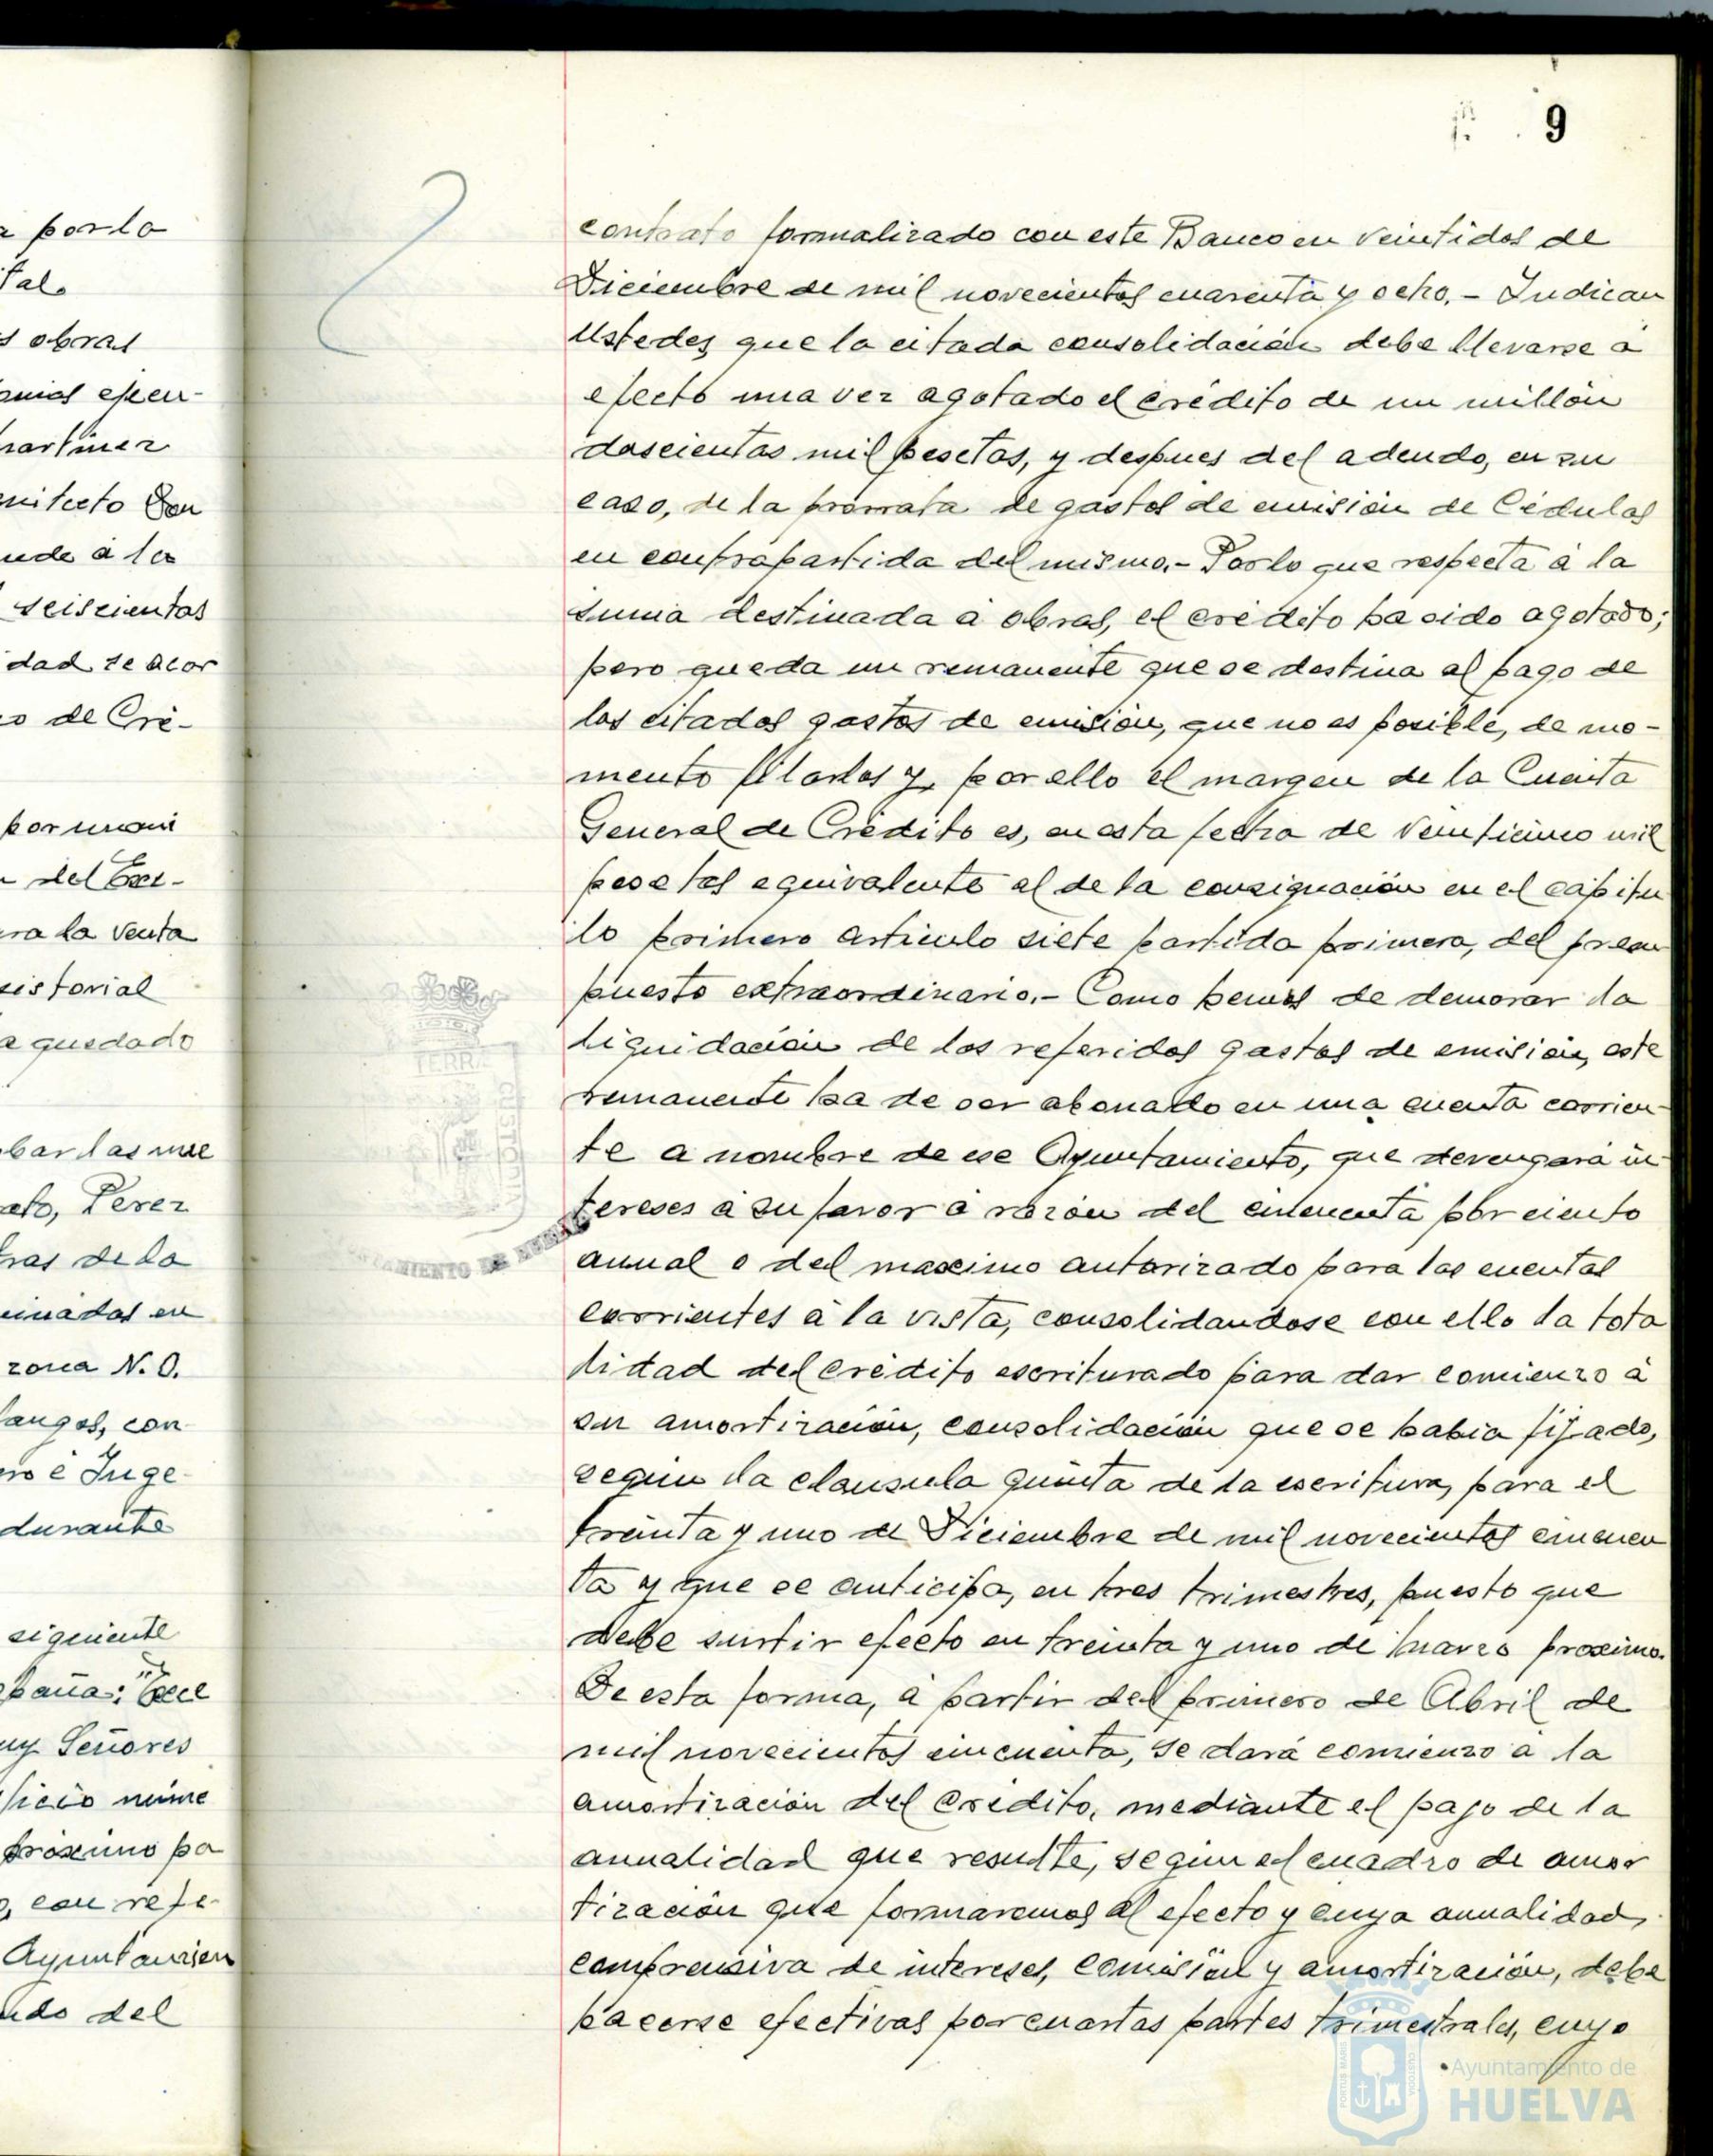 a por la
tal.
s obras
ejecu-
martinez
quitecto Don
nde á la
seiscientas
dad se acor
o de Cré-
por unani
del Exce-
ra la venta
sistorial
a quedado
bar las nue
ato, Perez
ras de la
uinadas en
zona N.O.
langos, con
ro é Inge-
durante
siguiente
paña: "Exce
uy Señores
ficio núme
próximo pa
o, con refe-
Ayuntamien
ado del
9
contrato formalizado con este Banco en veintidos de
Diciembre de mil novecientos cuarenta y ocho.- Indican
Ustedes que la citada consolidación debe llevarse á
efecto una vez agotado el crédito de un millón
doscientas mil pesetas, y despues del adeudo, en su
caso, de la prorrata de gastos de emisión de Cédulas
en contrapartida del mismo.- Por lo que respecta á la
suma destinada á obras, el crédito ha sido agotado;
pero queda un remanente que se destina al pago de
los citados gastos de emisión, que no es posible, de mo-
mento fijarlos y, por ello el margen de la Cuenta
General de Crédito es, en esta fecha de veinticinco mil
pesetas equivalente al de la consignación en el capitu
lo primero articulo siete partida primera, del presu
puesto extraordinario.- Como hemos de demorar la
liquidación de los referidos gastos de emisión, este
remanente ha de ser abonado en una cuenta corrien-
te a nombre de ese Ayuntamiento, que devengará in-
tereses á su favor á razón del cincuenta por ciento
anual o del maximo autorizado para las cuentas
corrientes á la vista, consolidandose con ello la tota
lidad del crédito escriturado para dar comienzo á
su amortización, consolidación que se habia fijado,
segun la clausula quinta de la escritura, para el
treinta y uno de Diciembre de mil novecientos cincuen
ta y que se anticipa, en tres trimestres, puesto que
debe surtir efecto en treinta y uno de marzo proximo.
De esta forma, á partir del primero de Abril de
mil novecientos cincuenta, se dará comienzo á la
amortización del crédito, mediante el pago de la
anualidad que resulte, segun el cuadro de amor
tización que formaremos al efecto y cuya anualidad,
comprensiva de intereses, comisión y amortización, debe
hacerse efectivas por cuartas partes trimestrales, cuyo
TERRA
CUSTODIA
AYUNTAMIENTO DE HUELVA
PORTUS MARIS
CUSTODIA
Ayuntamiento de
HUELVA